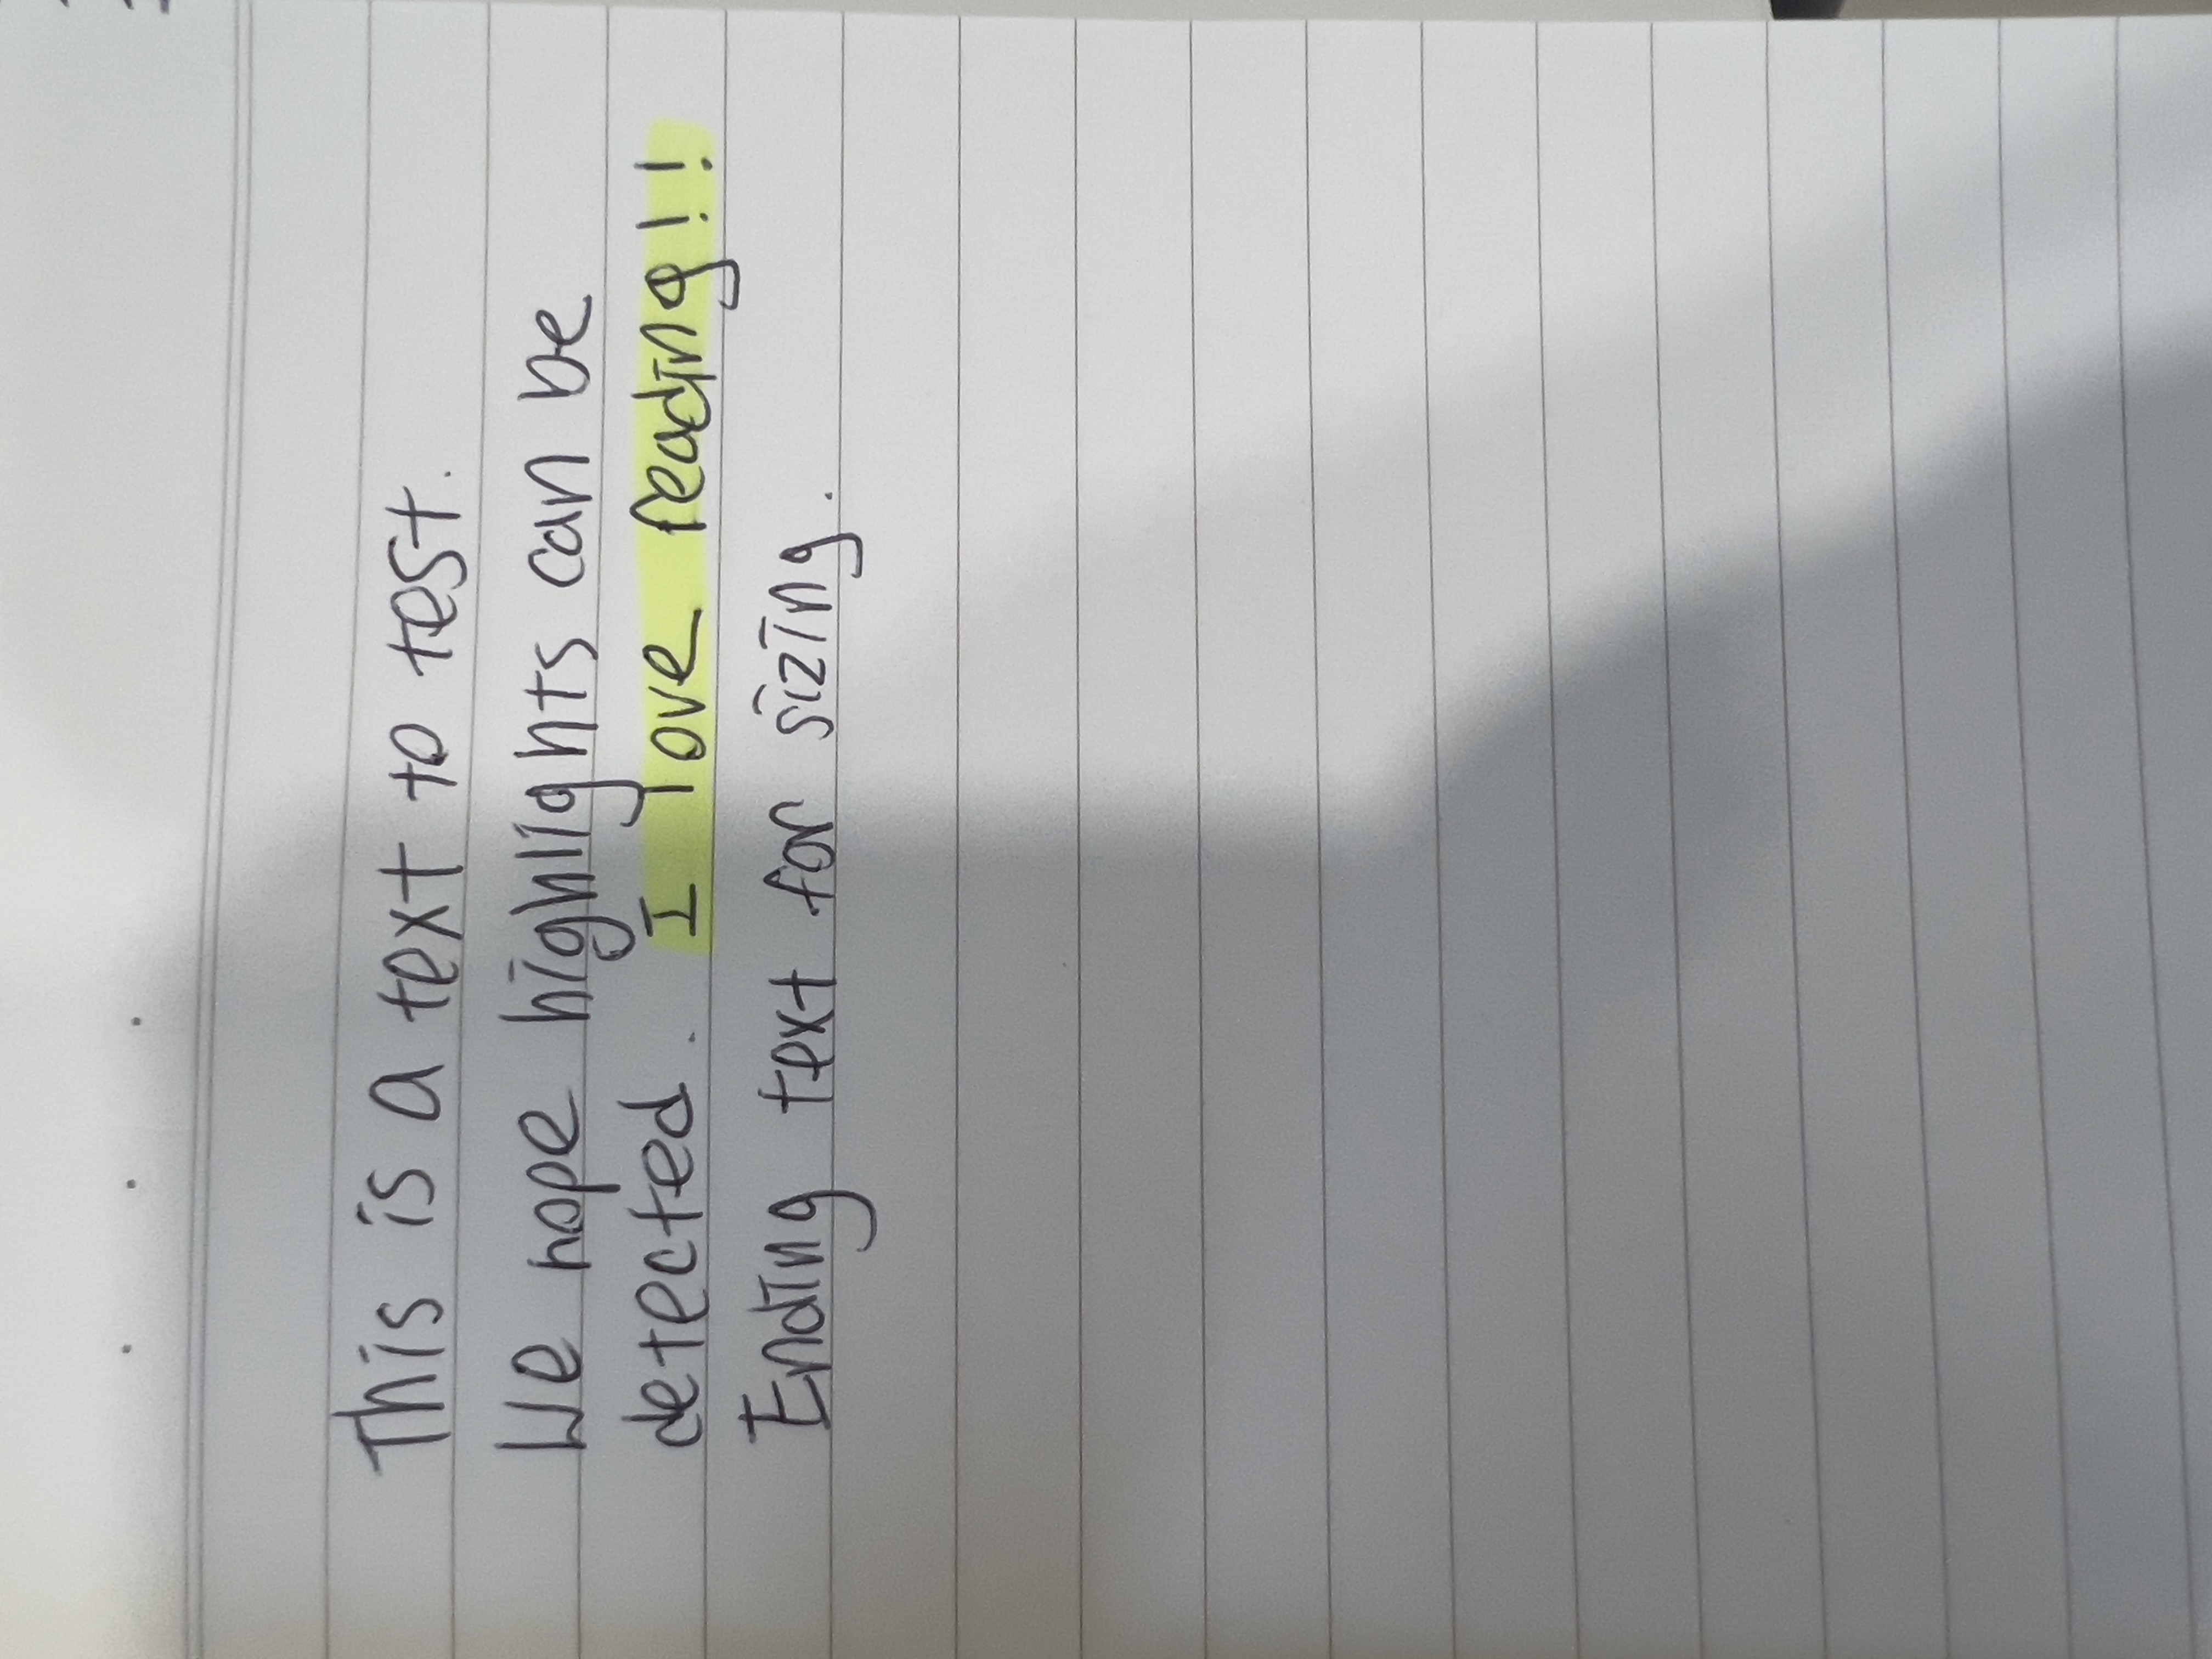 This is a text to test.
We hope highlights can be
detected. I love reading!!
Ending text for sizing.